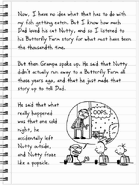 Now, I have no idea what that has to do with
my fish getting eaten. But I know how much
Dad loved his cat Nutty, and so I listened to
his Butterfly Farm story for what must have been
the thousandth time.
But then Grampa spoke up. He said that Nutty
didn't actually run away to a Butterfly Farm all
those years ago, and that he just made that
story up to tell Dad.
He said that what
really happened
was that one cold
night, he
accidentally left
Nutty outside,
and Nutty froze
like a popsicle.
OOPS.